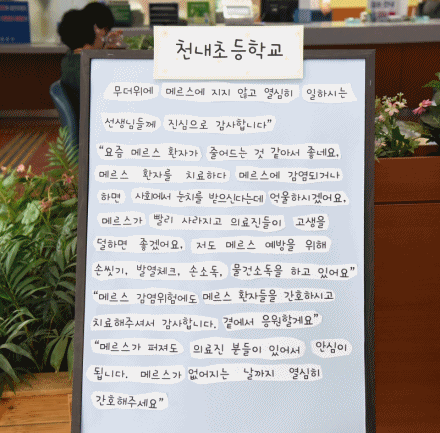 천내초등학교
무더위에 메르스에 지지 않고 열심히 일하시는
선생님들께 진심으로 감사합니다"
"요즘 메르스 환자가 줄어드는 것 같아서 좋네요.
메르스 환자를 치료하다 메르스에 감염되거나
하면 사회에서 눈치를 받으신다는데 억울하시겠어요.
메르스가 빨리 사라지고 의료진들이 고생을
덜하면 좋겠어요. 저도 메르스 예방을 위해
손씻기, 발열체크, 손소독, 물건소독을 하고 있어요"
"메르스 감염위험에도 메르스 환자들을 간호하시고
치료해주셔서 감사합니다. 곁에서 응원할게요"
"메르스가 퍼져도 의료진 분들이 있어서 안심이
됩니다. 메르스가 없어지는 날까지 열심히
간호해주세요"